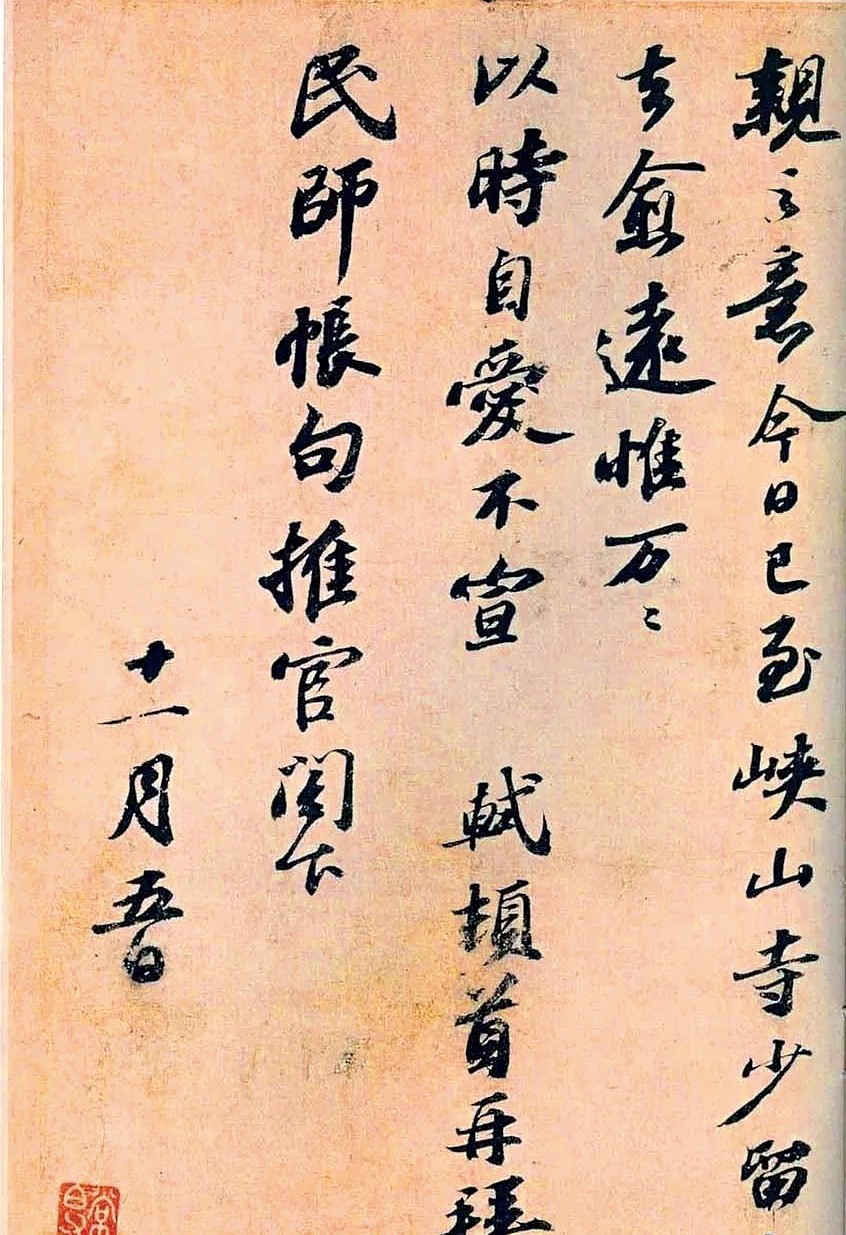 親之意今日已至峽山寺少留
去愈遠惟万〻
以時自愛不宣 軾頓首再拜
民師帳句推官閣下
十一月五日